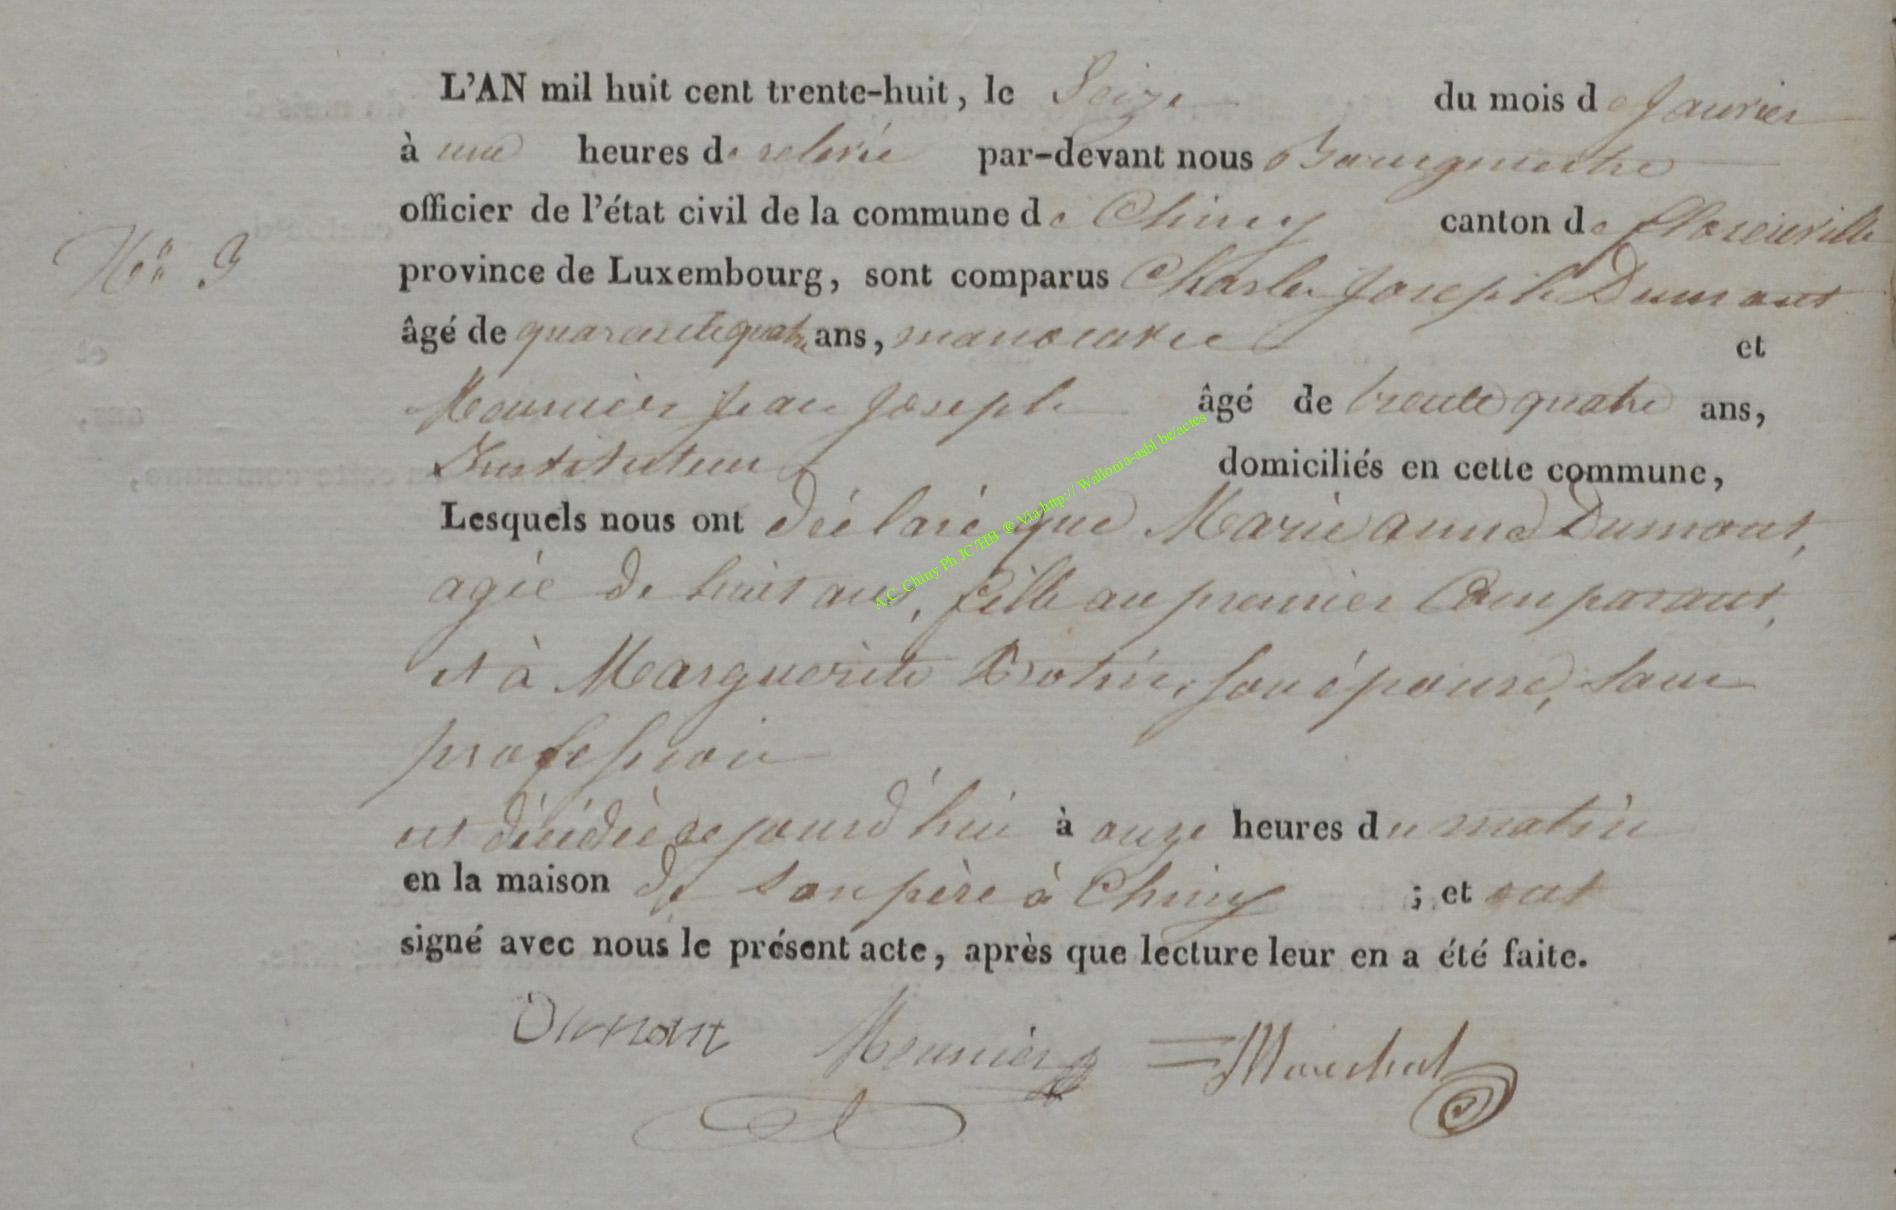 L'AN mil huit cent trente-huit, le Seize du mois de Janvier
à une heures de relevée par-devant nous Bourgmestre
officier de l'état civil de la commune de Chiny canton de Florenville
N° 3
province de Luxembourg, sont comparus Charles Joseph Dumont
âgé de quarante quatre ans, manoeuvre et
Meunier Jean Joseph âgé de trente quatre ans,
Instituteur domiciliés en cette commune,
Lesquels nous ont déclaré que Marie anne Dumont,
agée de huit ans, fille au premier Comparant,
et à Marguerite son épouse, sans
profession
est décédée ce jourd'hui à onze heures du matin
en la maison de son père à Chiny ; et ont
signé avec nous le présent acte, après que lecture leur en a été faite.
Dumont Meunier Maréchal
A.C. Chiny Ph JC/HB © Via http:// Wallonia-asbl.be/actes